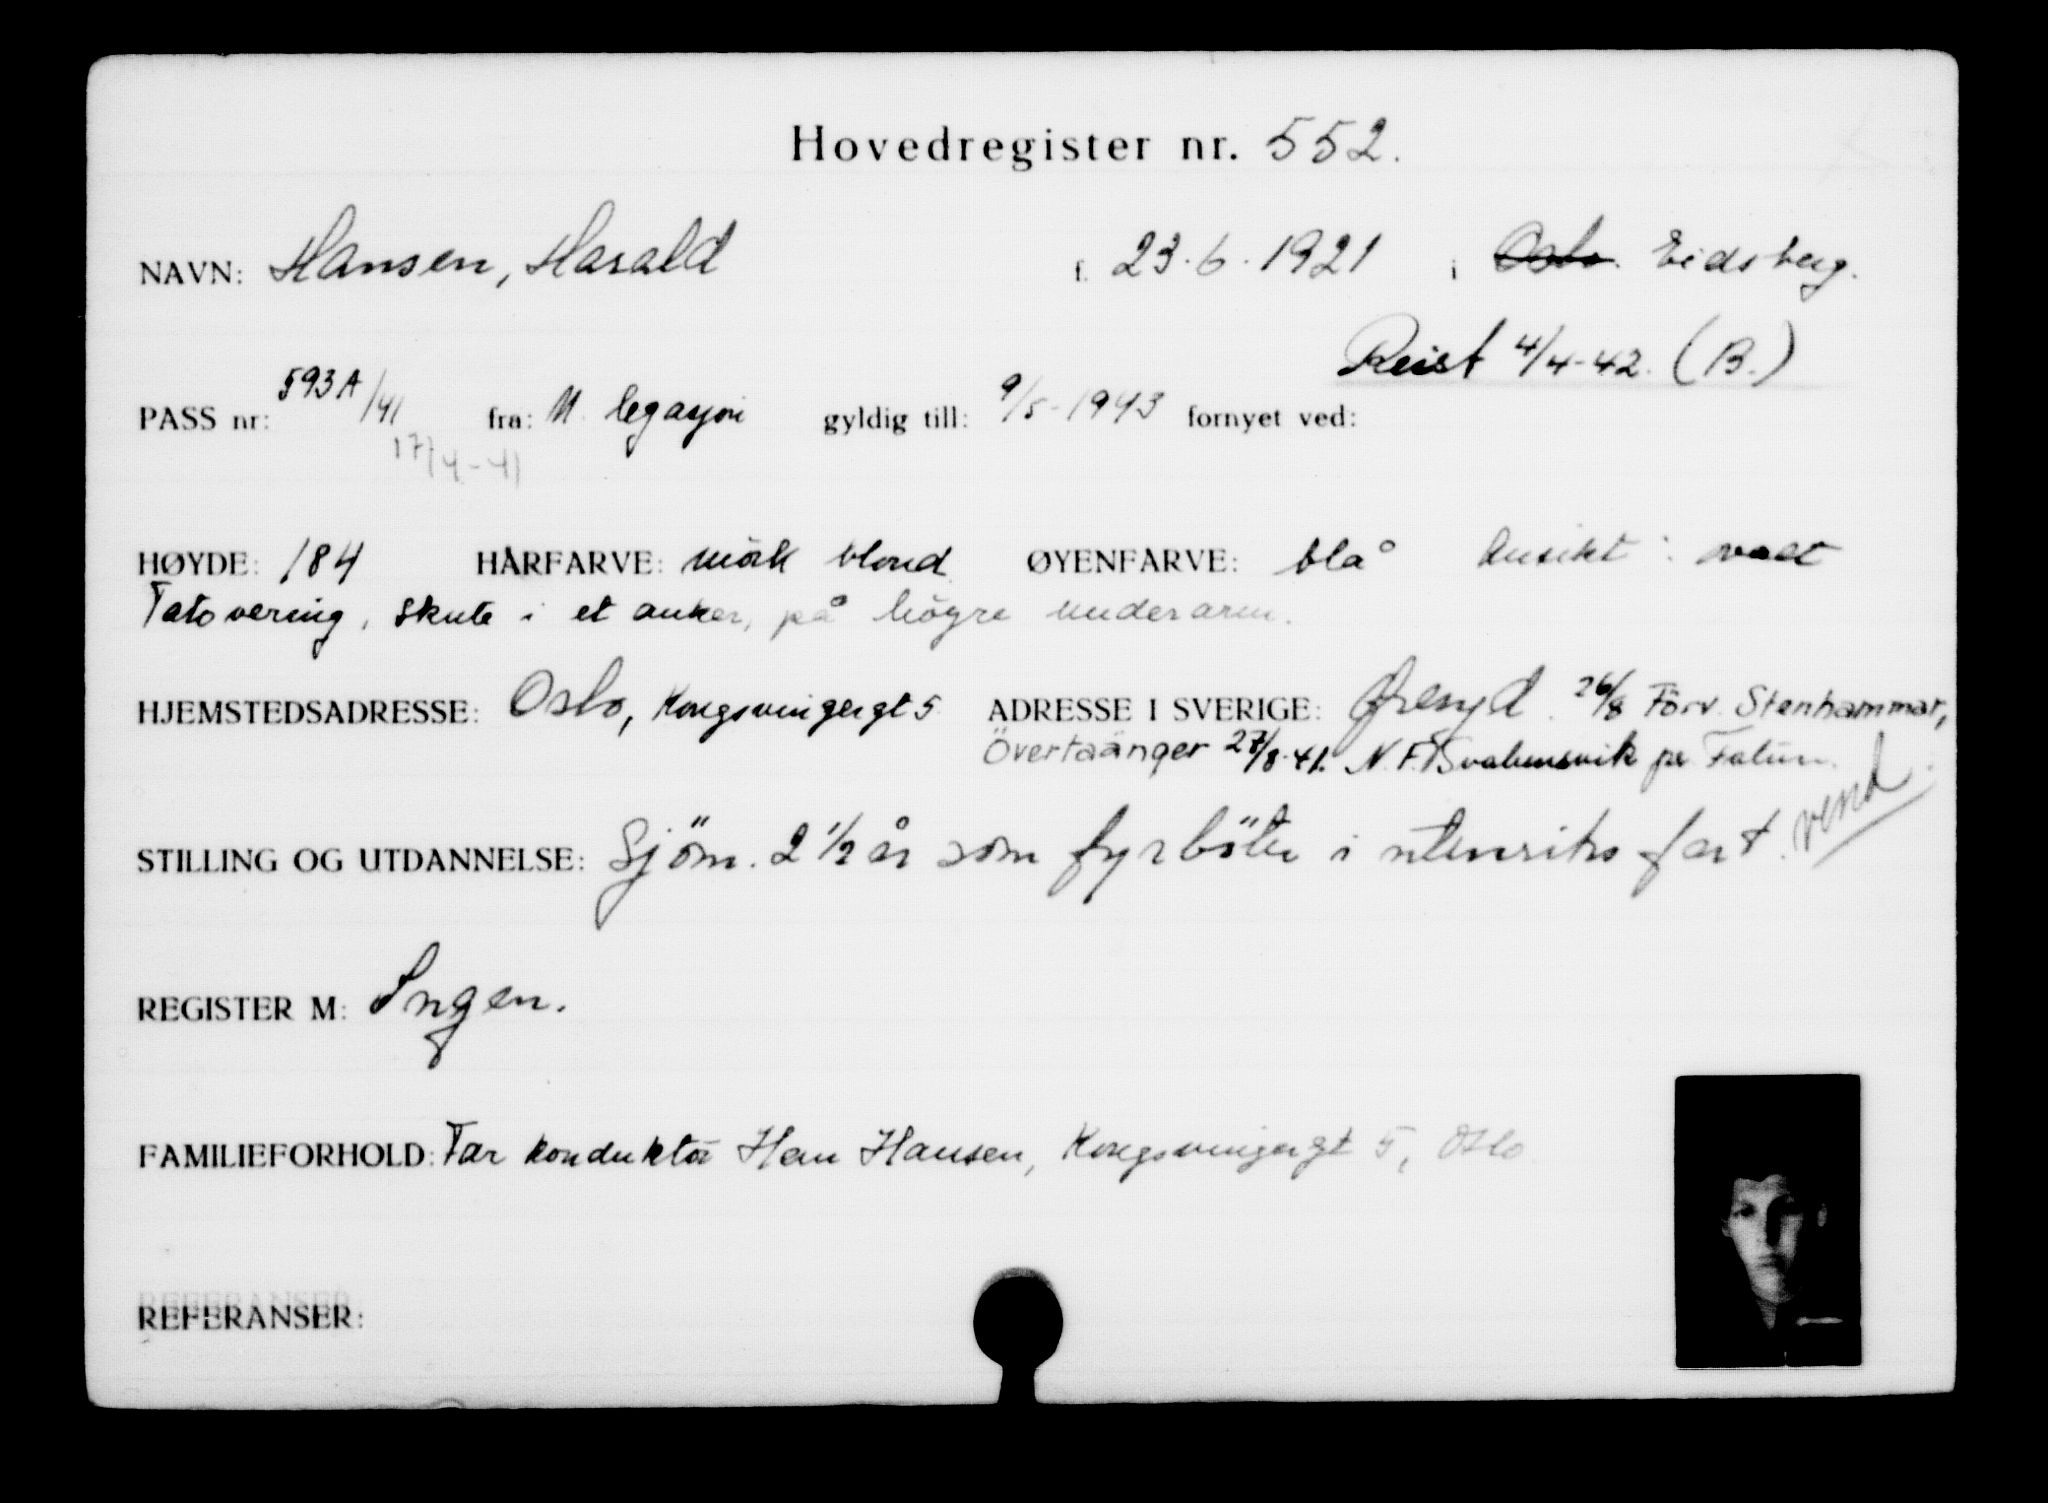 Hovedregister nr. 552.
NAVN: Hansen, Harald f. 23.6.1921 i Oslo. Eidsberg.
Reist 4/4-42. (B.)
PASS nr: 593A/41 fra: legasjon gyldig till: 9/5-1943 fornyet ved:
17/4-41
HØYDE: 184 HÅRFARVE: mörk blond ØYENFARVE: blå Ansikt: ovalt
Tatovering, skute i et anker, på högre underarm.
HJEMSTEDSADRESSE: Oslo, Kongsvingergt 5 ADRESSE I SVERIGE: Øreryd. 26/8 Förv. Stenhammar,
Övertaänger 27/8-41. N.F. per Falun.
vend
STILLING OG UTDANNELSE: Sjöm. 2 1/2 år som fyrböter i utenriks fart.
REGISTER M: Ingen.
FAMILIEFORHOLD: Far konduktör Hans Hansen, Kongsvingergt 5, Oslo
REFERANSER: